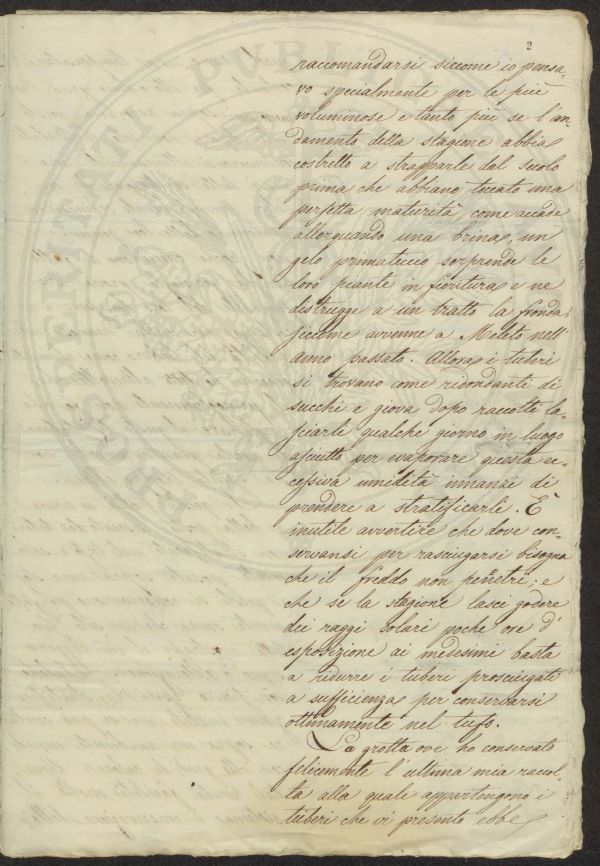 2
raccomandarsi siccome io pensa-
vo specialmente per le più
voluminose e tanto più se l'an-
damento della stagione abbia
costretto a strapparle dal suolo
prima che abbiano toccato una
perfetta maturità, come accade
allorquando una brina, un
gelo primaticcio sorprende le
loro piante in fioritura e ne
distrugge a un tratto la fronda,
siccome avvenne a Meleto nell'
anno passato. Allora i tuberi
si trovano come ridondanti di
succhi e giova dopo raccolti la-
sciarli qualche giorno in luogo
asciutto per evaporare questa ec-
cessiva umidità innanzi di
prendere a stratificarli. È
inutile avvertire che dove con-
servansi per rasciugarsi bisogna
che il freddo non penetri; e
che se la stagione lasci godere
dei raggi solari poche ore d'
esposizione ai medesimi basta
a ridurre i tuberi prosciugati
a sufficienza per conservarsi
ottimamente nel tufo.
La grotta ove ho conservato
felicemente l'ultima mia raccol-
ta alla quale appartengono i
tuberi che vi presento ebbe
PROSPERITATI PUBLICAE